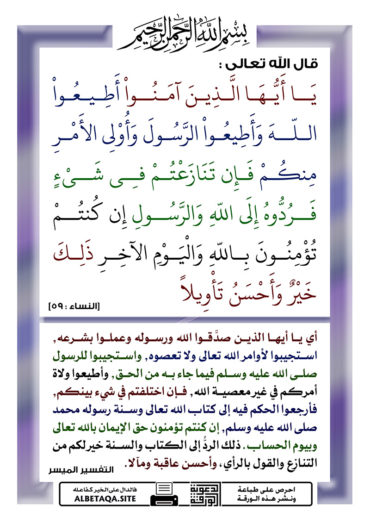 بسم الله الرحمن الرحيم
قال الله تعالى :
يَــا أَيُّـهَـا الَّـذِيـنَ آمَـنُــواْ أَطِـيـعُـواْ
الـلّــهَ وَأَطِيعُـواْ الرَّسُـولَ وَأُوْلِى الأَمْـرِ
مِنكُـمْ فَـإِن تَنَازَعْتُـمْ فِــى شَــىْءٍ
فَــرُدُّوهُ إِلَى اللّهِ وَالرَّسُــولِ إِن كُنتُــمْ
تُؤْمِنُــونَ بِــاللّهِ وَالْيَــوْمِ الآخِــرِ ذَلِــكَ
خَيْرٌ وَأَحْسَنُ تَأْوِيلاً
[النساء : ٥٩]
أي يـا أيهـا الذيـن صدَّقـوا الله ورسـوله وعملـوا بشـرعه,
استجيبوا لأوامر الله تعالى ولا تعصوه, واسـتجيبوا للرسول
صلـى الله عليه وسـلم فيما جاء بـه من الحـق, وأطيعوا ولاة
أمركـم في غير معصيـة الله, فـإن اختلفتم في شيء بينكـم,
فأرجعوا الحكم فيه إلى كتاب الله تعالى وسـنة رسوله محمد
صلى الله عليه وسلم, إن كنتم تؤمنون حق الإيمان بالله تعالى
وبيوم الحساب. ذلك الردُّ إلى الكتاب والسـنة خير لكم من
التنازع والقول بالرأي، وأحسن عاقبة ومآلا.
التفسير الميسر
احرص على طباعة
ونشر هذه الورقة
الدعوية
الورقة
فالدال على الخير كفاعله
ALBETAQA.SITE